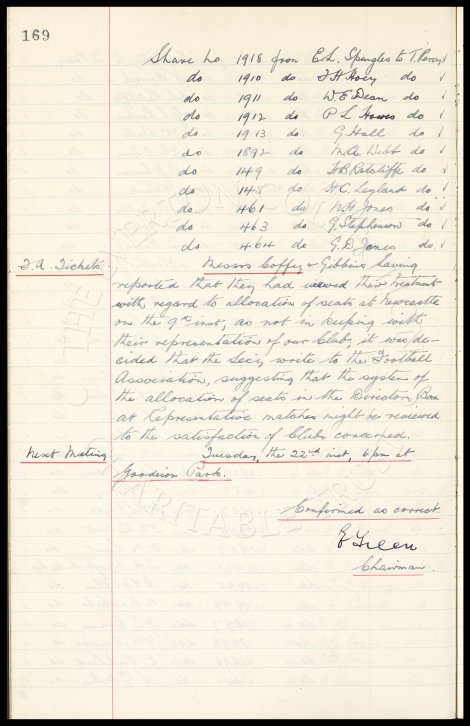 169
Share No 1918 from E.L. Spingles to T. Percy ✓
do 1910 do do ✓
do 1911 do W.E. Dean do ✓
do 1912 do P L Howes do ✓
do 1913 do G Hall do ✓
do 1892 do M.A. Webb do ✓
do 149 do H B Ratcliffe do ✓
do 145 do H C Leyland do ✓
do 461 do Jones do ✓
do 463 do G. Stephenson do ✓
do 464 do G.D. Jones do ✓
F.A. Tickets. Messrs Coffey & Gibbins having
reported that they had viewed their treatment
with regard to allocation of seats at Newcastle
on the 9th inst, as not in keeping with
their representation of our Club, it was de-
cided that the Secy write to the Football
Association, suggesting that the system of
the allocation of seats in the Directors Box
at Representative matches might be reviewed
to the satisfaction of Clubs concerned.
Next Meeting Tuesday, the 22nd inst, 6pm at
Goodison Park.
Confirmed as correct.
E Green
Chairman.
THE EVERTON
CHARITABLE TRUST